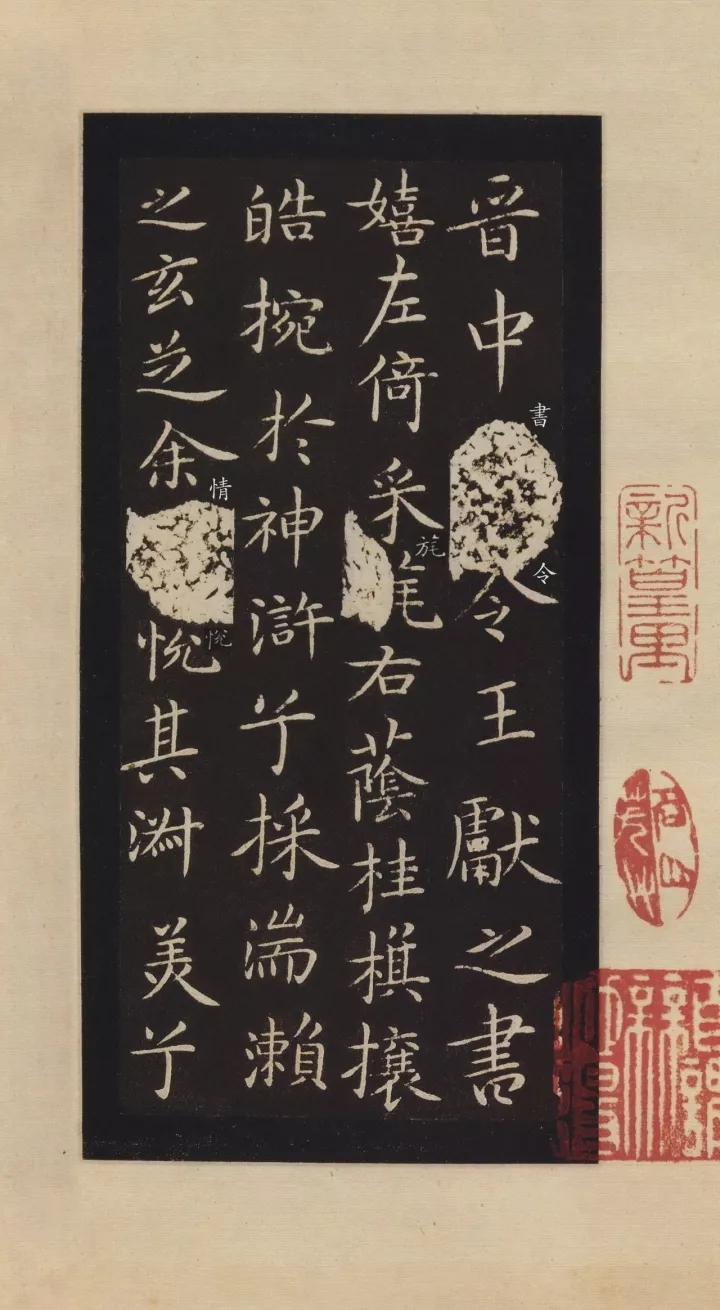 晉中書令王獻之書
嬉左倚采旄右蔭桂旗攘
皓捥於神滸兮採湍瀨
之玄芝余情悅其淑美兮